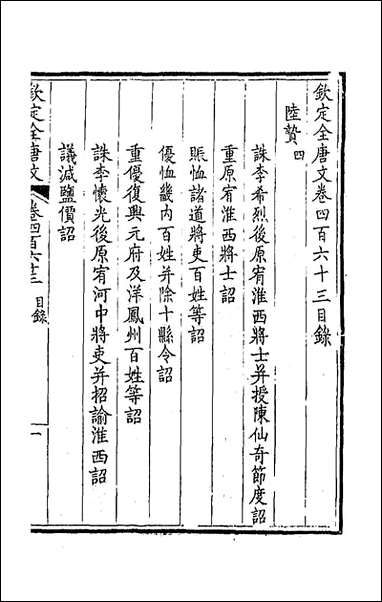 欽定全唐文卷四百六十三目錄
陸贄四
誅李希烈後原宥淮西將士并授陳仙奇節度詔
重原宥淮西將士詔
賑恤諸道將吏百姓等詔
優恤畿內百姓并除十縣令詔
重優復興元府及洋鳳州百姓等詔
誅李懷光後原宥河中將吏并招諭淮西詔
議減鹽價詔
欽定全唐文 卷四百六十三 目錄 一